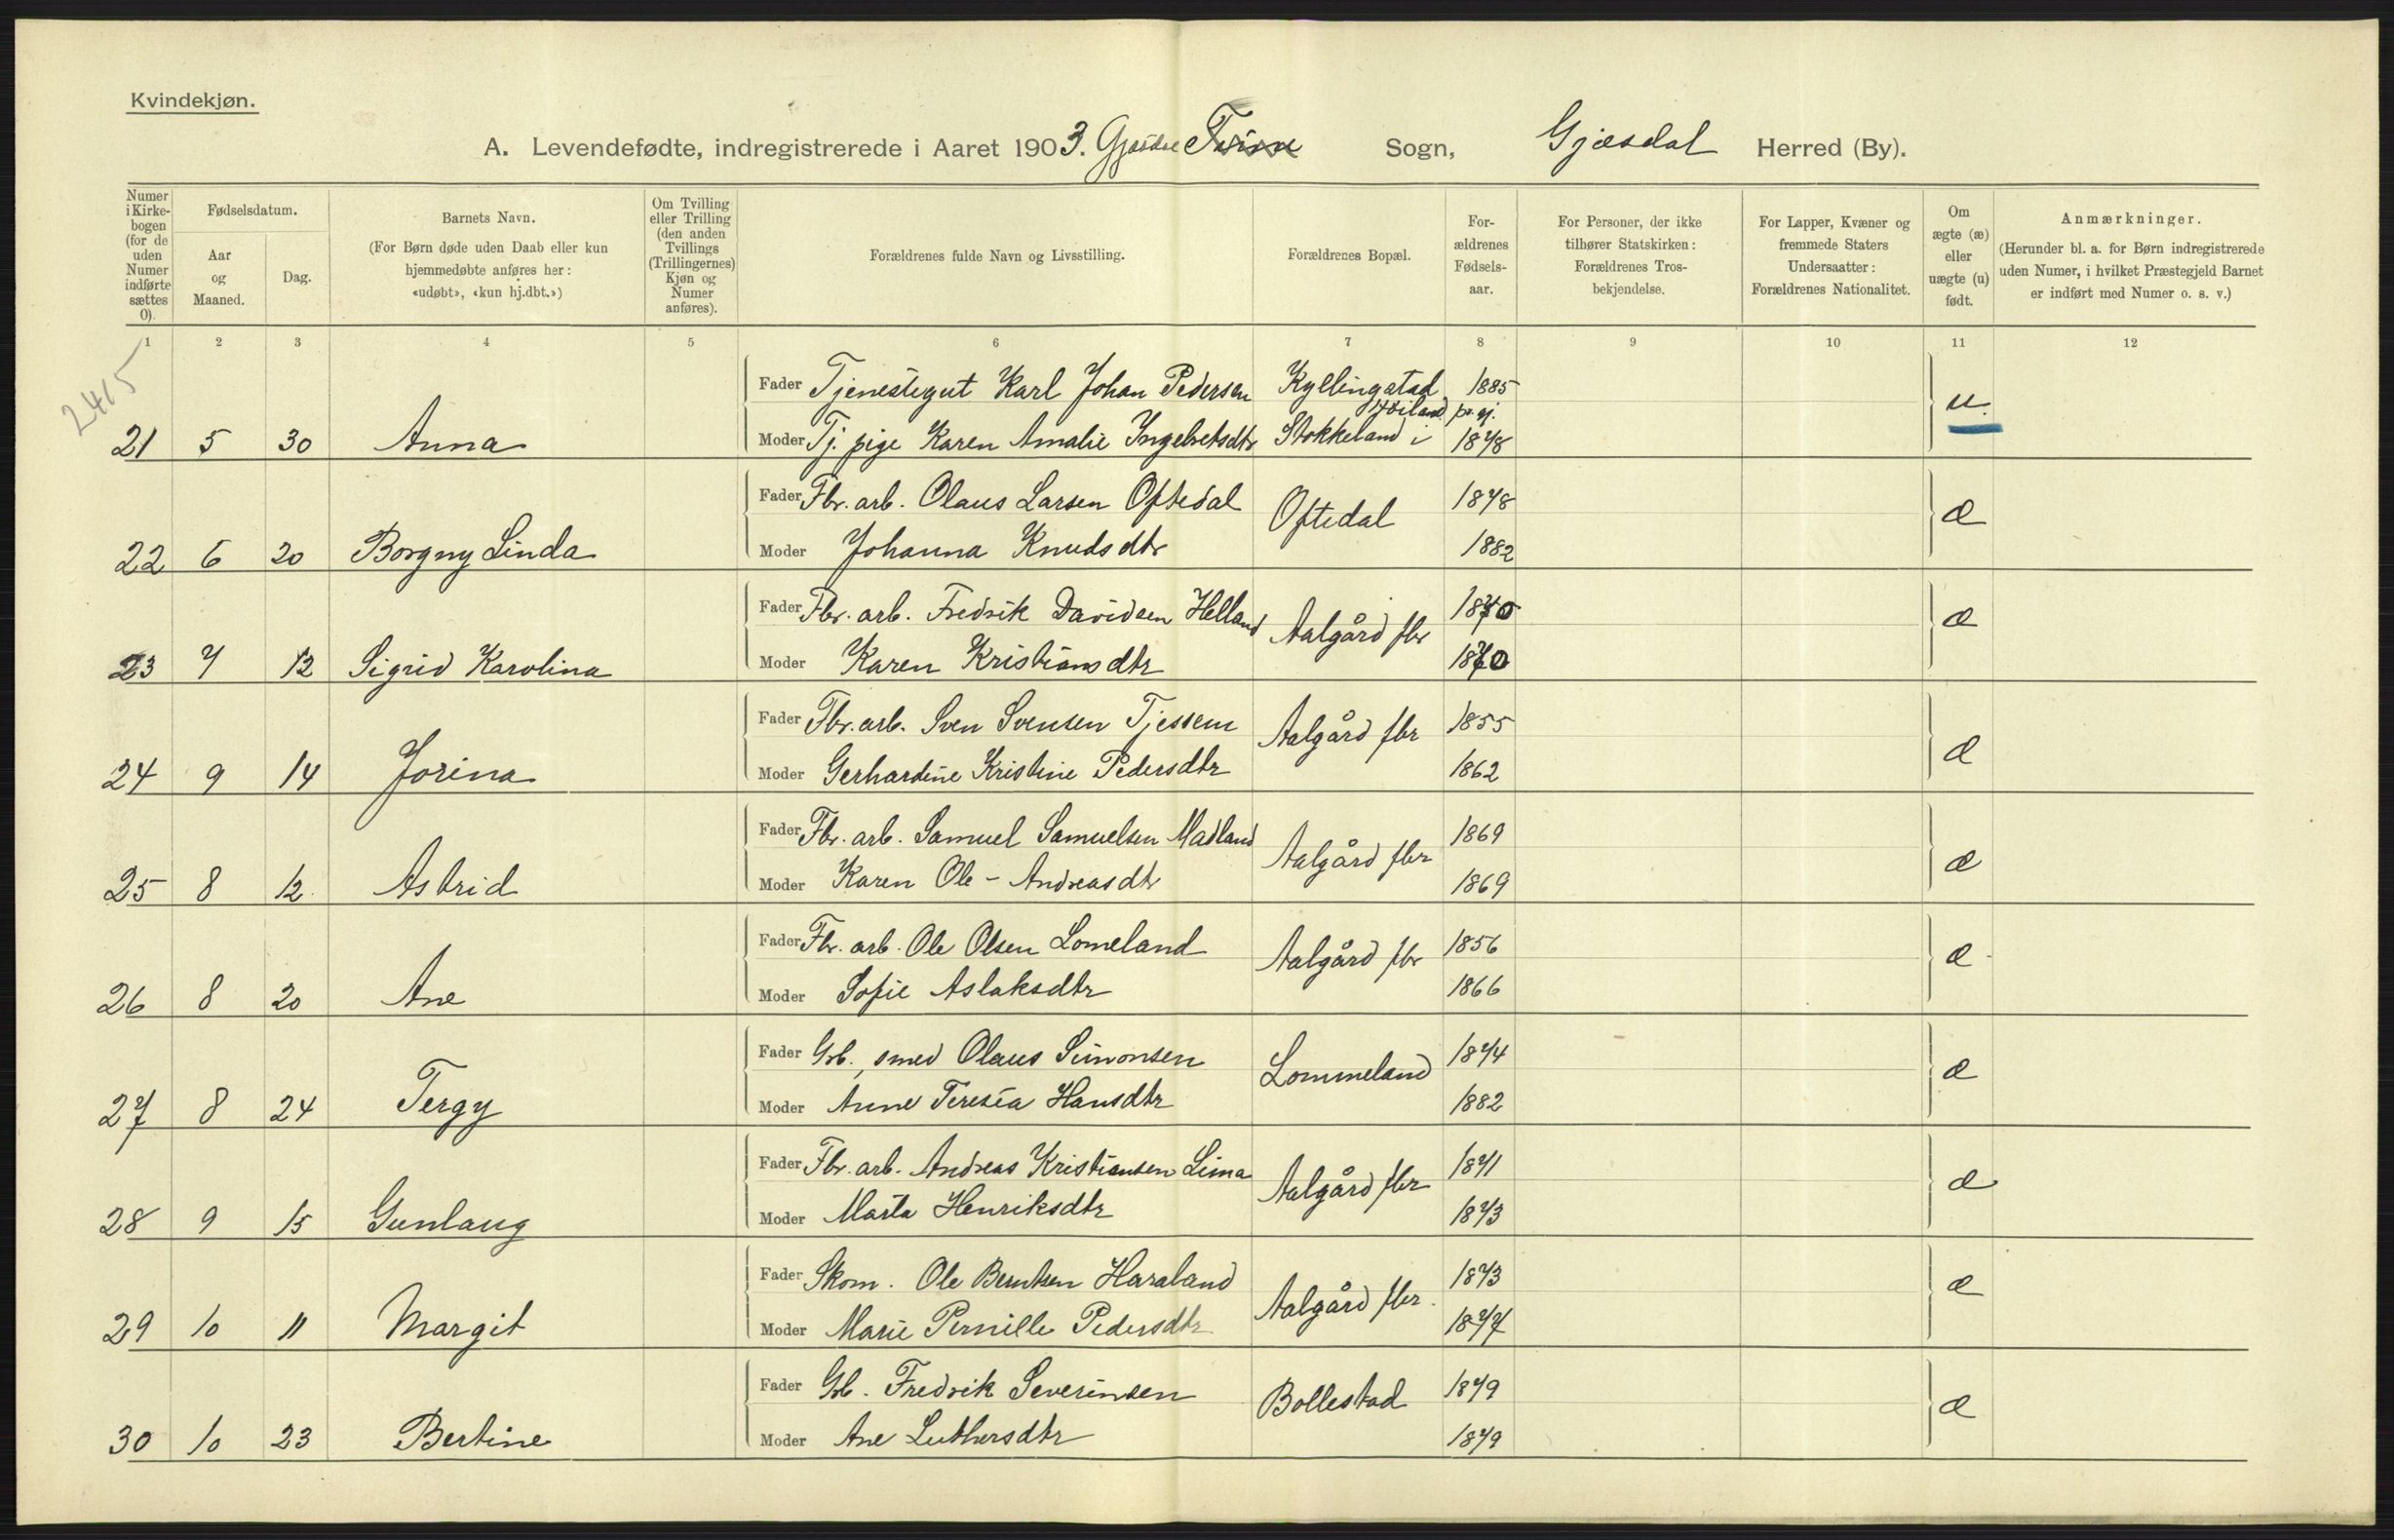 Kvindekjøn.
A. Levendefødte, indregistrerede i Aaret 1903. Sogn, Gjæsdal Herred (By).
Numer i Kirkebogen (for de uden Numer indførte sættes 0).
Fødselsdatum.
Aar og Maaned.
Dag.
Barnets Navn.
(For Børn døde uden Daab eller kun hjemmedøbte anføres her: «udøbt», «kun hj.dbt.»)
Om Tvilling eller Trilling (den anden Tvillings (Trillingernes) Kjøn og Numer anføres).
Forældrenes fulde Navn og Livsstilling.
Forældrenes Bopæl.
Forældrenes Fødselsaar.
For Personer, der ikke tilhører Statskirken: Forældrenes Trosbekjendelse.
For Lapper, Kvæner og fremmede Staters Undersaatter: Forældrenes Nationalitet.
Om ægte (æ) eller uægte (u) født.
Anmærkninger.
(Herunder bl. a. for Børn indregistrerede uden Numer, i hvilket Præstegjeld Barnet er indført med Numer o. s. v.)
1 2 3 4 5 6 7 8 9 10 11 12
2415
Fader Tjenestegut Karl Johan Pedersen Kyllingstad 1885 u.
Høiland pr. gj.
21 5 30 Anna Moder Tj. pige Karen Amalie Ingebretsdtr Stokkeland i 1878
Fader Fbr. arb. Olaus Larsen Oftedal Oftedal 1878 æ
22 6 20 Borgny Linda Moder Johanna Knudsdtr 1882
Fader Fbr. arb. Fredrik Davidsen Helland Aalgård fbr 1870 æ
23 7 12 Sigrid Karolina Moder Karen Kristiansdtr 1870
Fader Fbr. arb. Sven Svensen Tjessem Aalgård fbr 1855 æ
24 9 14 Jorina Moder Gerhardine Kristine Pedersdtr 1862
Fader Fbr. arb. Samuel Samuelsen Madland Aalgård fbr 1869 æ
25 8 12 Astrid Moder Karen Ole-Andreasdtr 1869
Fader Fbr. arb. Ole Olsen Lomeland Aalgård fbr 1856 æ
26 8 20 Ane Moder Sofie Aslaksdtr 1866
Fader Grb., smed Olaus Simonsen Lommeland 1874 æ
27 8 24 Tergy Moder Anne Teresia Hansdtr 1882
Fader Fbr. arb. Andreas Kristiansen Lima Aalgård fbr 1871 æ
28 9 15 Gunlaug Moder Marta Henriksdtr 1873
Fader Skom. Ole Berntsen Haraland Aalgård fbr. 1873 æ
29 10 11 Margit Moder Marie Pernille Pedersdtr 1877
Fader Grb. Fredrik Severinsen Bollestad 1879 æ
30 10 23 Bertine Moder Ane Luthersdtr 1879